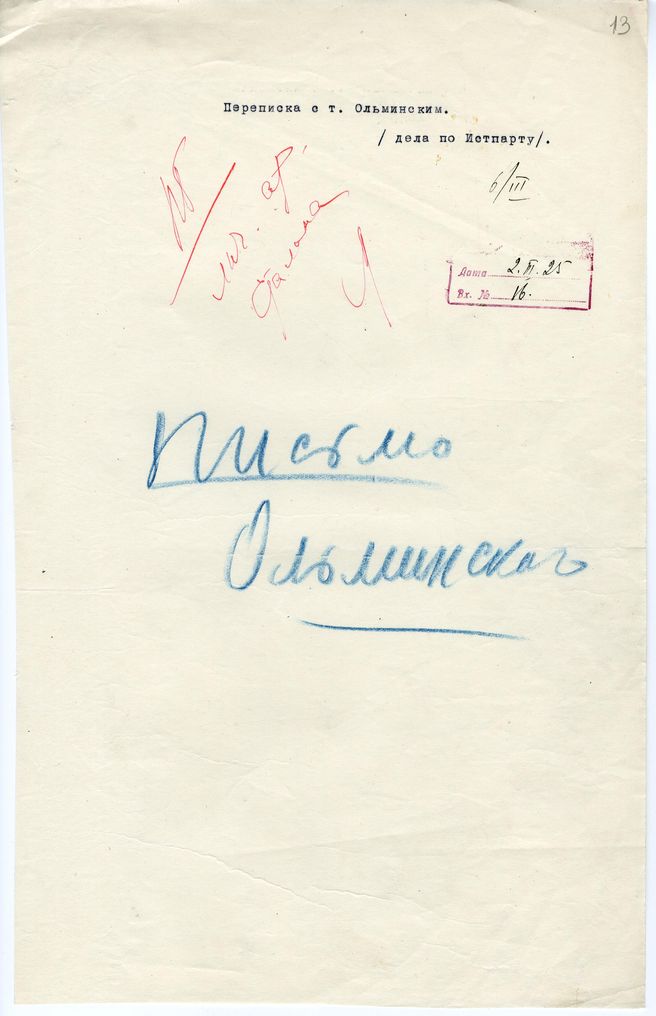 13
Переписка с т. Ольминским.
/ дела по Истпарту/.
6/III
лич. ар.
Дата 2.III.25
Вх. № 16.
Письмо
Ольминского